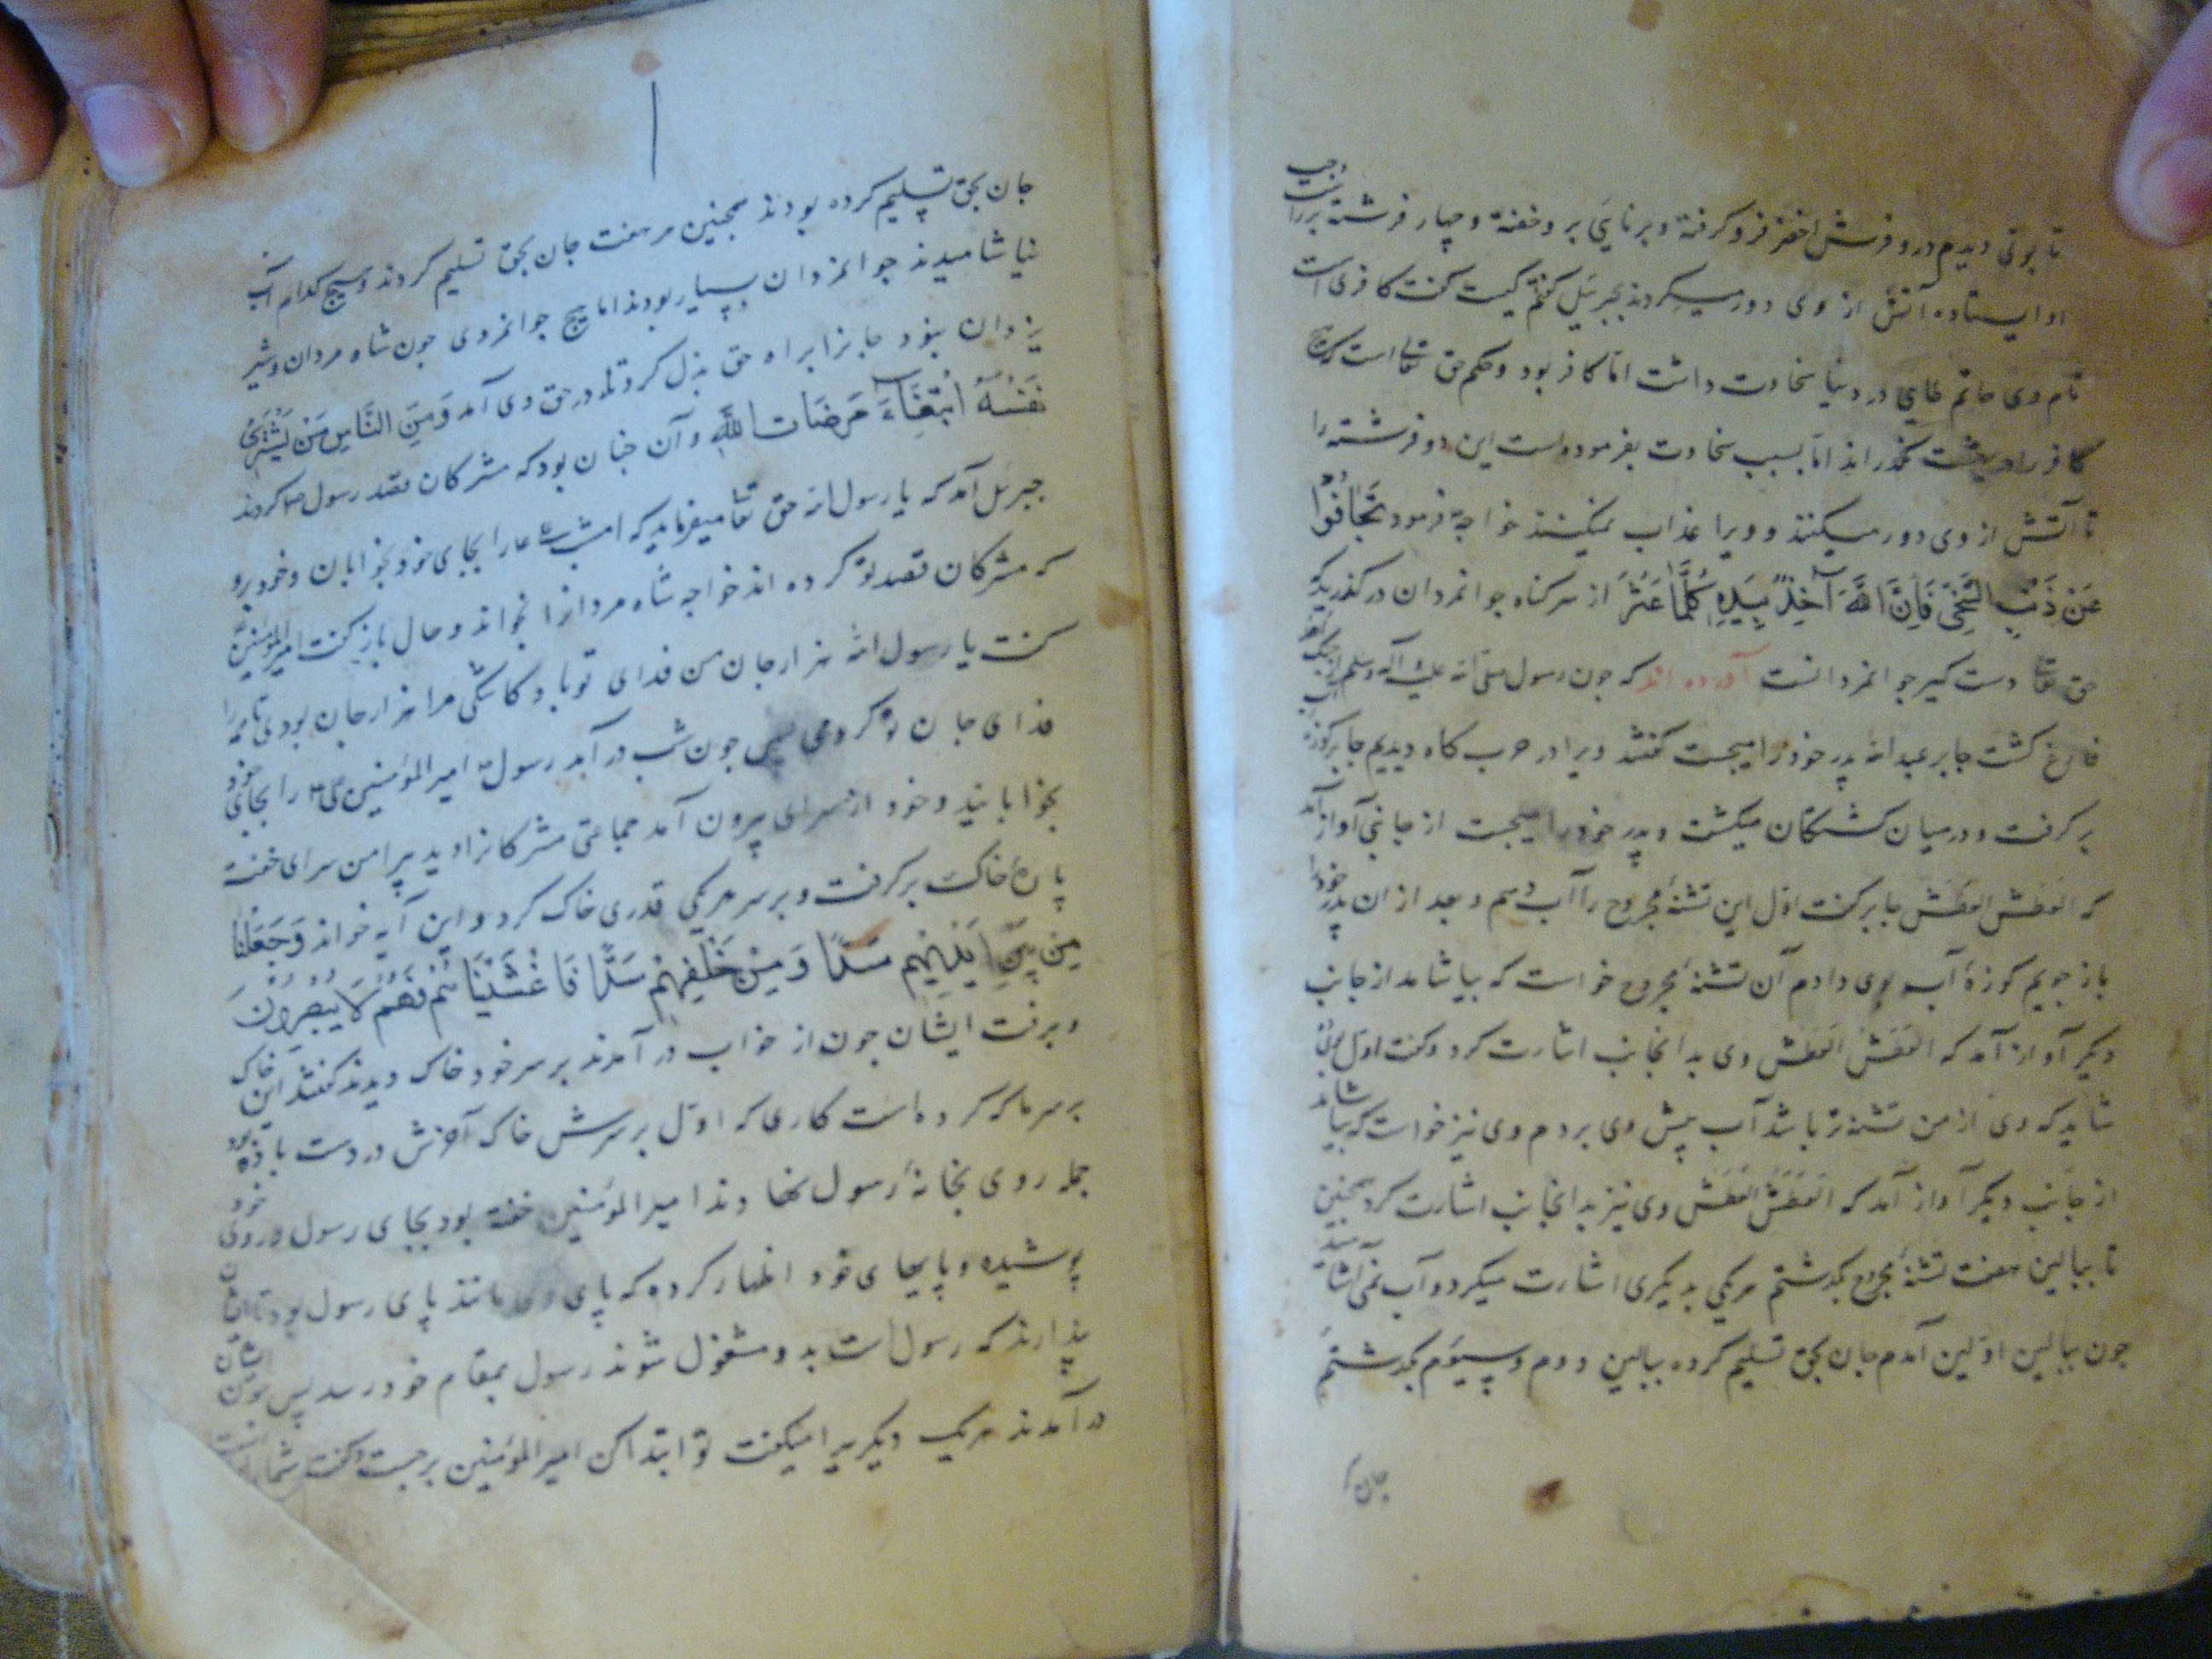 تابوتی دیدم درو فرش اخضر فرو کرفته و برنایی برو خفته و چهار فرشته بر راست وجب
او ایستاده آتش از وی دور میکردند بجبرئیل کفتم کیست کفت کافری است
نام وی حاتم طایی در دنیا سخاوت داشت اما کافر بود و حکم حق تعا است که هیچ
کافر را در بهشت نکذراند اما بسبب سخاوت بفرموده است این دو فرشته را
تا آتش از وی دور میکنند و ویرا عذاب نمیکنند خواجه فرمود تَجَافُوا
عَنْ ذَنْبِ السَّخِیِّ فَاِنَّ اللّٰهَ آخِذٌ بِیَدِهِ کُلَّمَا عَثَرَ از سر کناه جوانمردان درکذرید که
حق تعا دست کیر جوانمردانست آورده اند که چون رسول صلی الله علیه و آله و سلم از جنک احد
فارغ کشت جابر عبد الله پدر خود را میجست کفتند ویرا در حرب کاه دیدیم جابر کوزه آب
بر کرفت و در میان کشتکان میکشت و پدر خود را میجست از جانبی آواز آمد
که العطش العطش جابر کفت اول این تشنهٔ مجروح را آب دهم و بعد از ان پدر خود را
باز جویم کوزهٔ آب بوی دادم آن تشنهٔ مجروح خواست که بیاشامد از جانب
دیکر آواز آمد که العطش العطش وی بدانجانب اشارت کرد و کفت اول بوی ده
شاید که وی از من تشنه تر باشد آب پیش وی بردم وی نیز خواست که بیاشامد
از جانب دیکر آواز آمد که العطش العطش وی نیز بدانجانب اشارت کرد همچنین
تا ببالین هفت تشنهٔ مجروح بکذشتم هر یکی بدیکری اشارت میکرد و آب نمی آشامید
چون ببالین اولین آمدم جان بحق تسلیم کرده ببالین دوم و سیوم بکذشتم
جان
جان بحق تسلیم کرده بودند همچنین هر هفت جان بحق تسلیم کردند و هیچ کدام آب
نیاشامیدند جوانمردان بسیار بودند اما هیچ جوانمردی چون شاه مردان و شیر
یزدان نبود جانرا براه حق بذل کرد تا در حق وی آمد وَمِنَ النَّاسِ مَنْ یَشْرِی
نَفْسَهُ ابْتِغَاءَ مَرْضَاتِ اللّٰهِ و آن چنان بود که مشرکان قصد رسول کردند
جبرئیل آمد که یا رسول الله حق تعا میفرماید که امشب علی را بجای خود بخوابان و خود برو
که مشرکان قصد تو کرده اند خواجه شاه مردانرا بخواند و حال باز کفت امیر المؤمنین
کفت یا رسول الله هزار جان من فدای تو باد کاشکی مرا هزار جان بودی تا همه را
فدای جان تو کردمی پس چون شب در آمد رسول امیر المؤمنین علی را بجای خود
بخوابانید و خود از سرای بیرون آمد جماعتی مشرکانرا دید پیرامن سرای خفته
پارهٔ خاک بر کرفت و بر سر هر یکی قدری خاک کرد و این آیه خواند وَجَعَلْنَا
مِنْ بَیْنِ اَیْدِیهِمْ سَدًّا وَمِنْ خَلْفِهِمْ سَدًّا فَاَغْشَیْنَاهُمْ فَهُمْ لَا یُبْصِرُونَ
و برفت ایشان چون از خواب در آمدند بر سر خود خاک دیدند کفتند این خاک
بر سر ما که کرده است کاری که اول بر سرش خاک آخرش در دست باد بود
جمله روی بخانهٔ رسول نهادند امیر المؤمنین خفته بود بجای رسول و روی خود
پوشیده و پایهای خود اظهار کرده که پای وی مانند پای رسول بود تا ایشان
پندارند که رسول است بدو مشغول شوند رسول بمقام خود رسد پس چون ایشان
در آمدند هر یک دیکریرا میکفت تو ابتدا کن امیر المؤمنین برجست و کفت شما